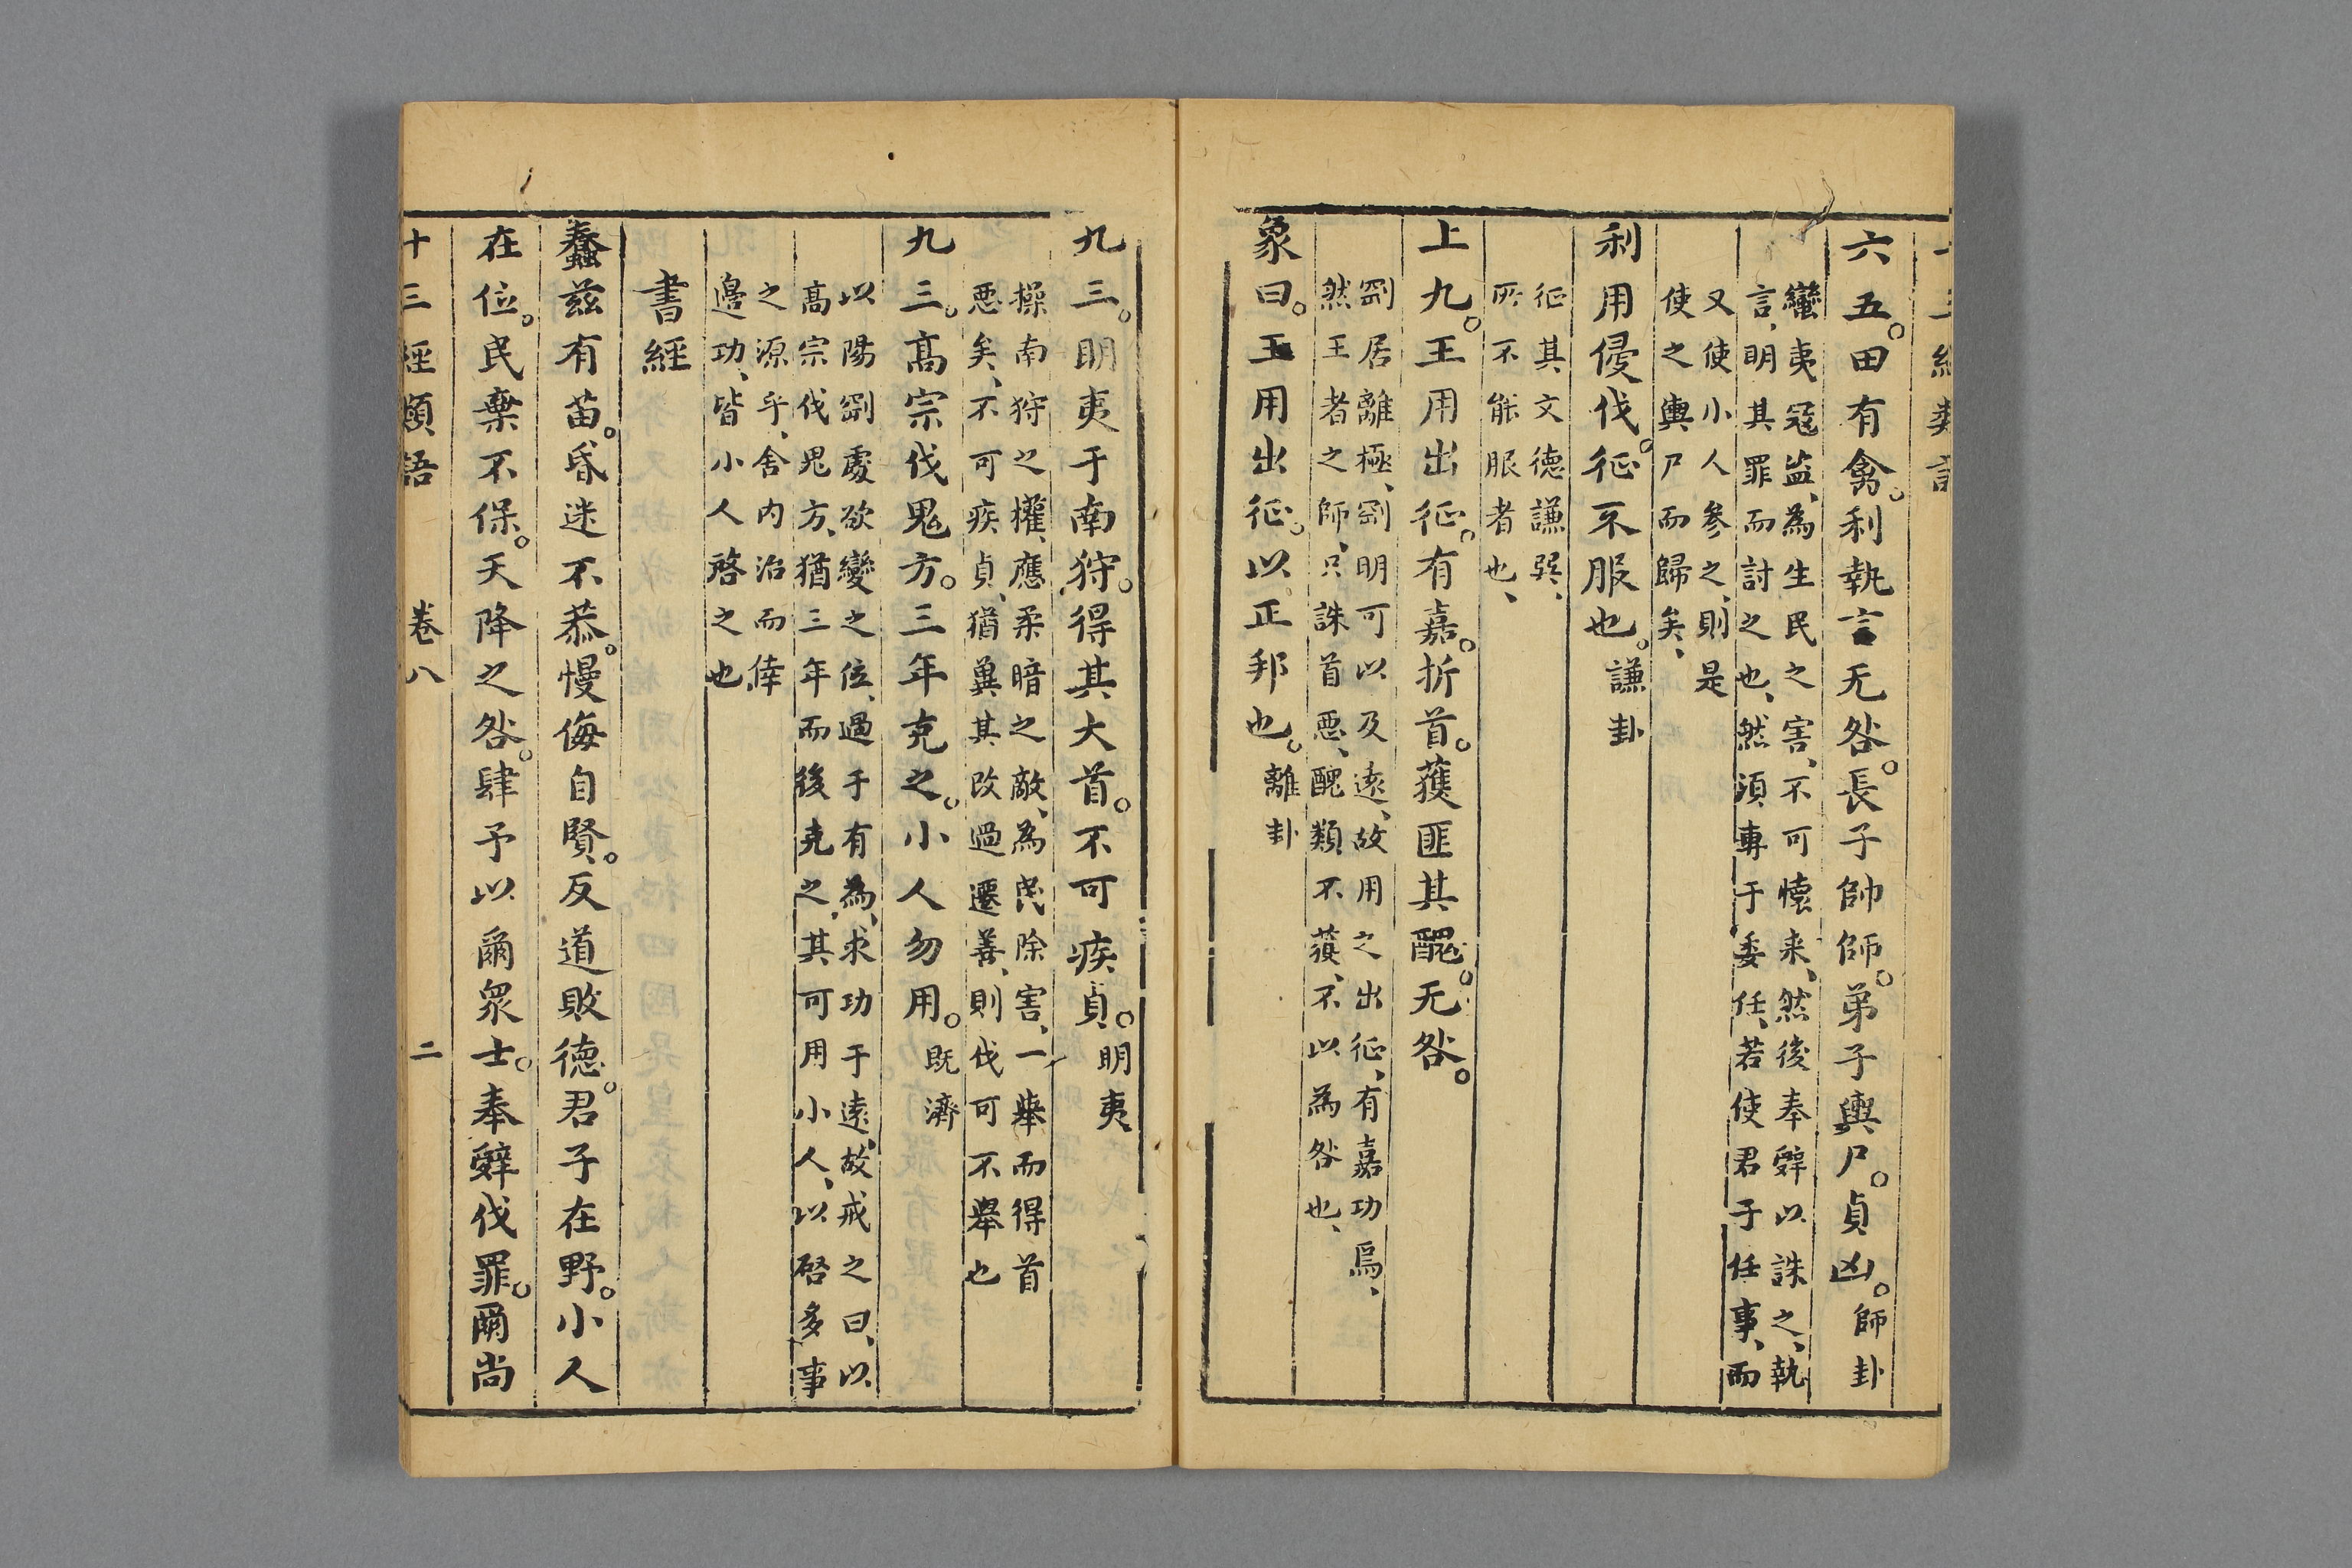 六五。田有禽。利執言无咎。長子帥師。弟子輿尸。貞凶。師卦
蠻夷寇盜、為生民之害、不可懷来、然後奉辤以誅之、執
言、明其罪而討之也、然須專于委任、若使君子任事、而
又使小人參之、則是
使之輿尸而歸矣、
利用侵伐。征不服也。謙卦
征其文德謙巽、
所不能服者也、
上九。王用出征。有嘉。折首。獲匪其醜。无咎。
剛居離極、剛明可以及遠、故用之出征、有嘉功焉、
然王者之師、只誅首惡、醜類不獲、不以為咎也、
象曰。王用出征。以正邦也。離卦
九三。明夷于南狩。得其大首。不可疾貞。明夷
操南狩之權、應柔暗之敵、為民除害、一舉而得首
惡矣、不可疾貞、猶冀其改過遷善、則伐可不舉也
九三。高宗伐鬼方。三年克之。小人勿用。既濟
以陽剛處欲變之位、過于有為、求功于遠、故戒之曰、以
高宗伐鬼方、猶三年而後克之、其可用小人、以啓多事
之源乎、舍内治而倖
邊功、皆小人啓之也
書經
蠢兹有苗。昏迷不恭。慢侮自賢。反道敗德。君子在野。小人
在位。民棄不保。天降之咎。肆予以爾衆士。奉辤伐罪。爾尚
十三經類語　卷八　二